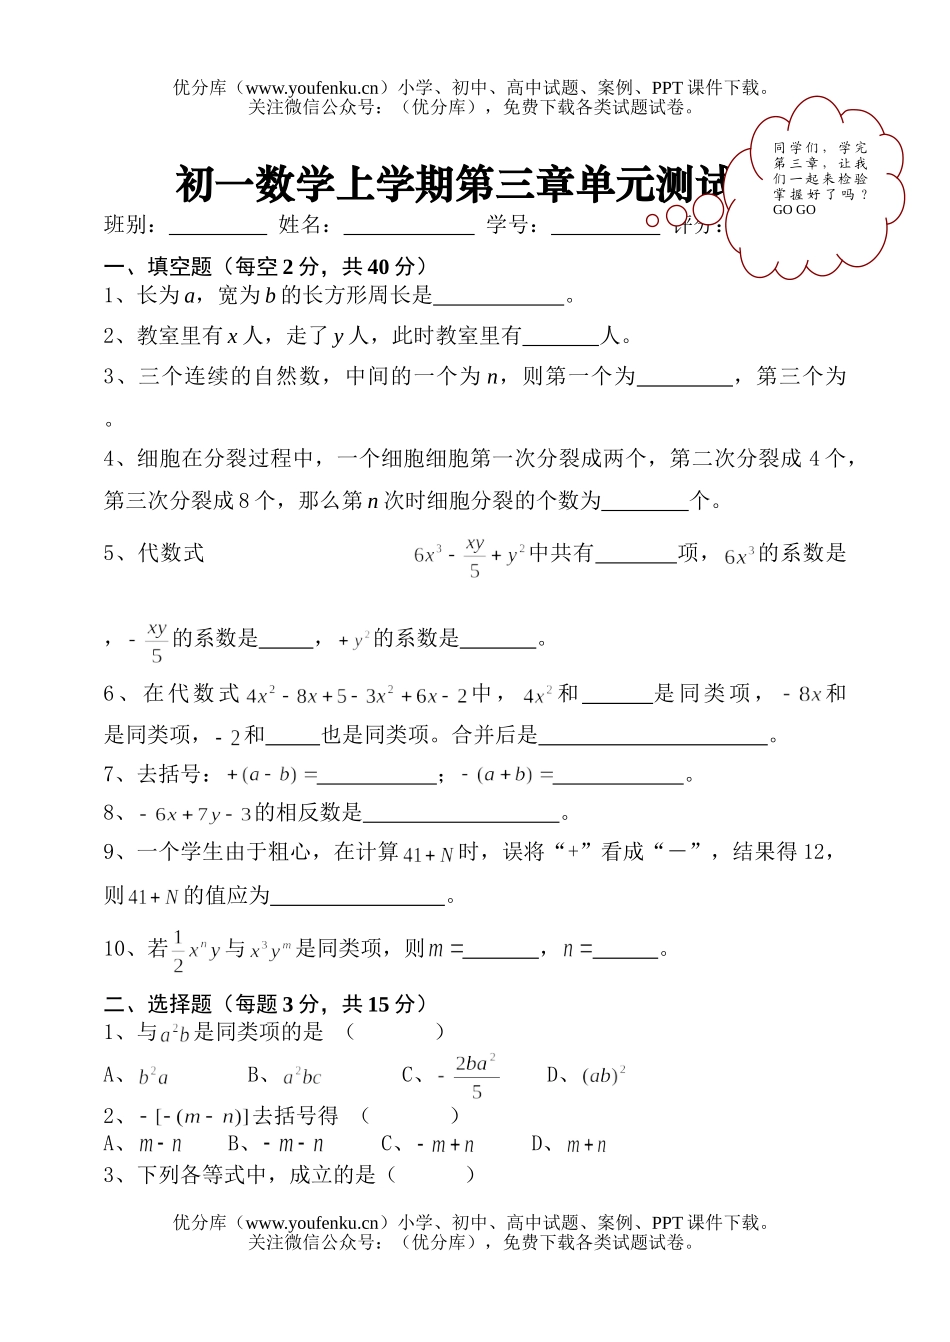 优分库（www.youfenku.cn）小学、初中、高中试题、案例、PPT 课件下载。
关注微信公众号：（优分库），免费下载各类试题试卷。
同学们，学完
第三章，让我
们一起来检验
掌握好了吗？
GO GO
初一数学上学期第三章单元测试
班别：_________ 姓名：____________ 学号：__________ 评分：
一、填空题（每空 2 分，共 40 分）
1、长为 a，宽为 b 的长方形周长是____________。
2、教室里有 x 人，走了 y 人，此时教室里有_______人。
3、三个连续的自然数，中间的一个为 n，则第一个为_________，第三个为
。
4、细胞在分裂过程中，一个细胞细胞第一次分裂成两个，第二次分裂成 4 个，
第三次分裂成 8 个，那么第 n 次时细胞分裂的个数为________个。
5、代数式 6x³ - xy/5 + y² 中共有________项，6x³的系数是
，- xy/5 的系数是_____，+ y²的系数是_______。
6、在代数式 4x² - 8x + 5 - 3x² + 6x - 2 中，4x² 和______是同类项，- 8x 和
是同类项，- 2 和_____也是同类项。合并后是_____________________。
7、去括号：+ (a - b) =___________；- (a + b) =____________。
8、- 6x + 7y - 3 的相反数是__________________。
9、一个学生由于粗心，在计算 41 + N 时，误将“+”看成“－”，结果得 12，
则 41 + N 的值应为________________。
10、若 1/2 xⁿy 与 x³yᵐ 是同类项，则 m =_______，n =______。
二、选择题（每题 3 分，共 15 分）
1、与 a²b 是同类项的是 （ ）
A、b²a B、a²bc C、- 2ba²/5 D、(ab)²
2、- [- (m - n)] 去括号得 （ ）
A、m - n B、- m - n C、- m + n D、m + n
3、下列各等式中，成立的是（ ）
优分库（www.youfenku.cn）小学、初中、高中试题、案例、PPT 课件下载。
关注微信公众号：（优分库），免费下载各类试题试卷。